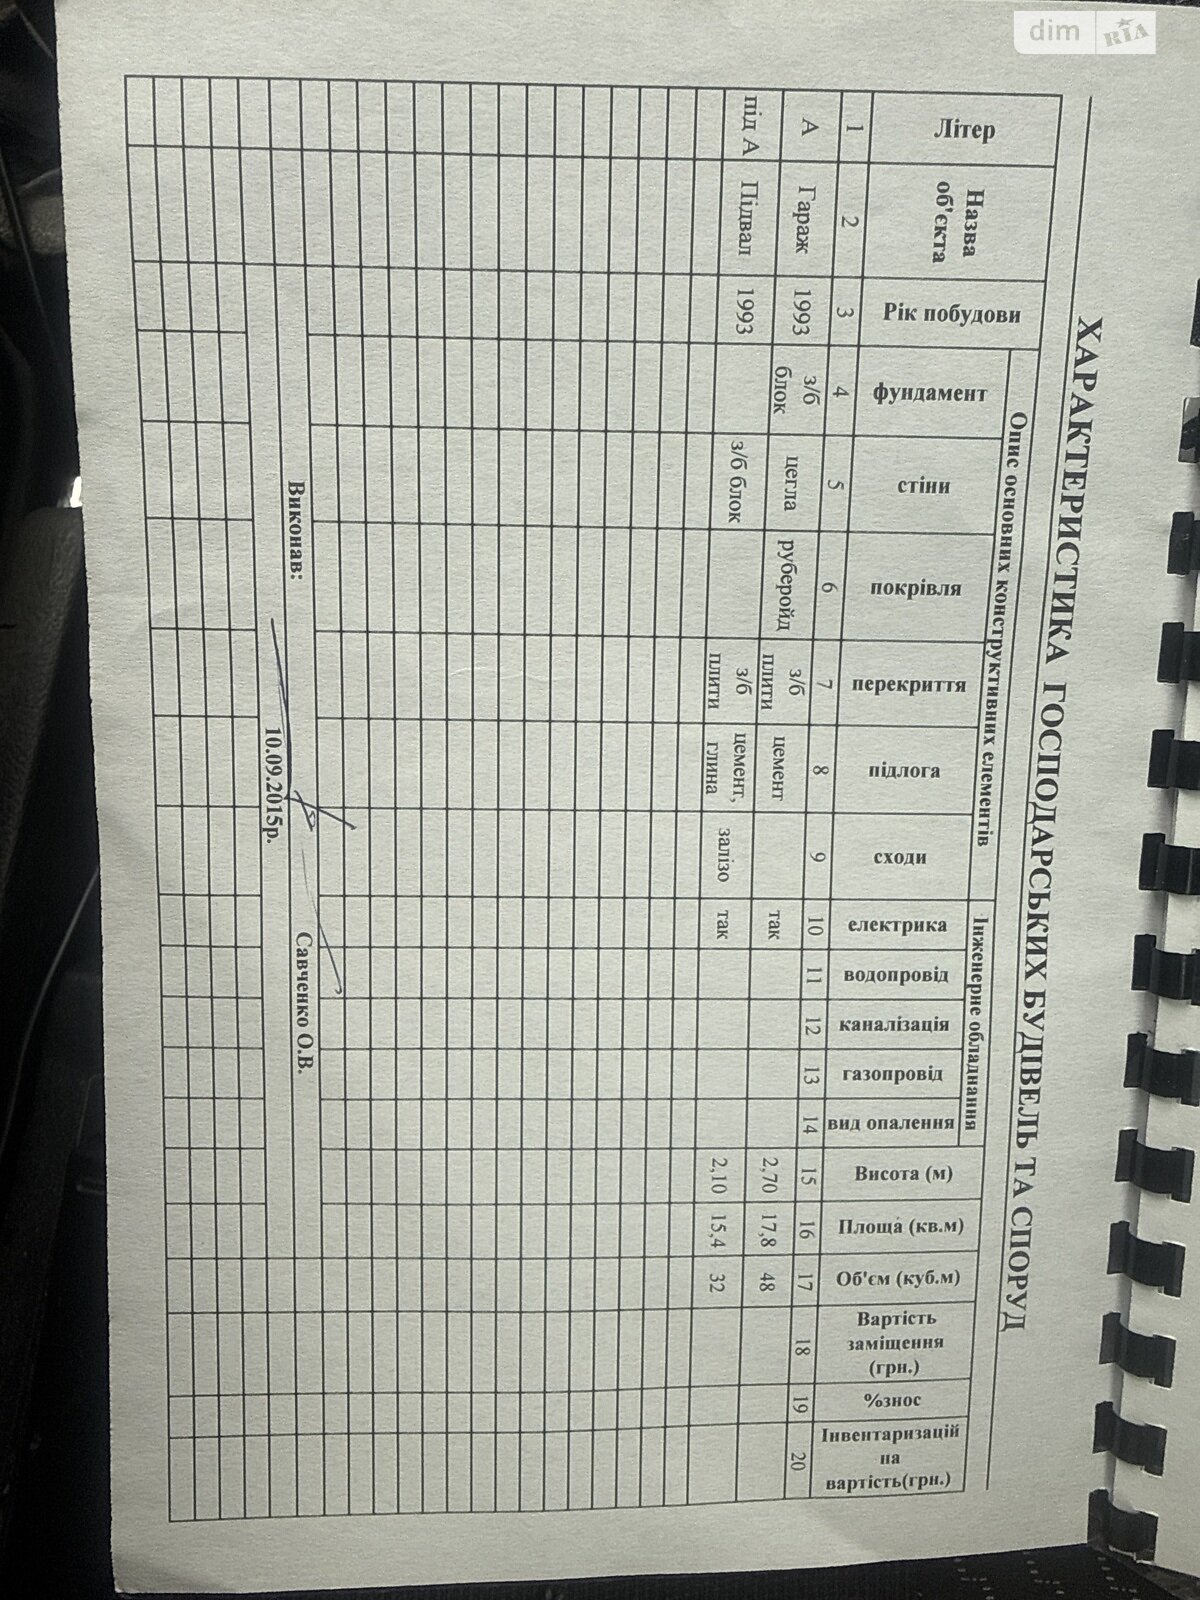 dim RIA
ХАРАКТЕРИСТИКА ГОСПОДАРСЬКИХ БУДІВЕЛЬ ТА СПОРУД
Опис основних конструктивних елементів
Інженерне обладнання
Літер
Назва
об'єкта
Рік побудови
фундамент
стіни
покрівля
перекриття
підлога
сходи
електрика
водопровід
каналізація
газопровід
вид опалення
Висота (м)
Площа (кв.м)
Об'єм (куб.м)
Вартість
заміщення
(грн.)
%знос
Інвентаризацій
на
вартість(грн.)
1 2 3 4 5 6 7 8 9 10 11 12 13 14 15 16 17 18 19 20
А Гараж 1993 з/б блок цегла рубероїд з/б плити цемент так 2,70 17,8 48
під А Підвал 1993 з/б блок з/б плити цемент, глина залізо так 2,10 15,4 32
Виконав: Савченко О.В.
10.09.2015р.